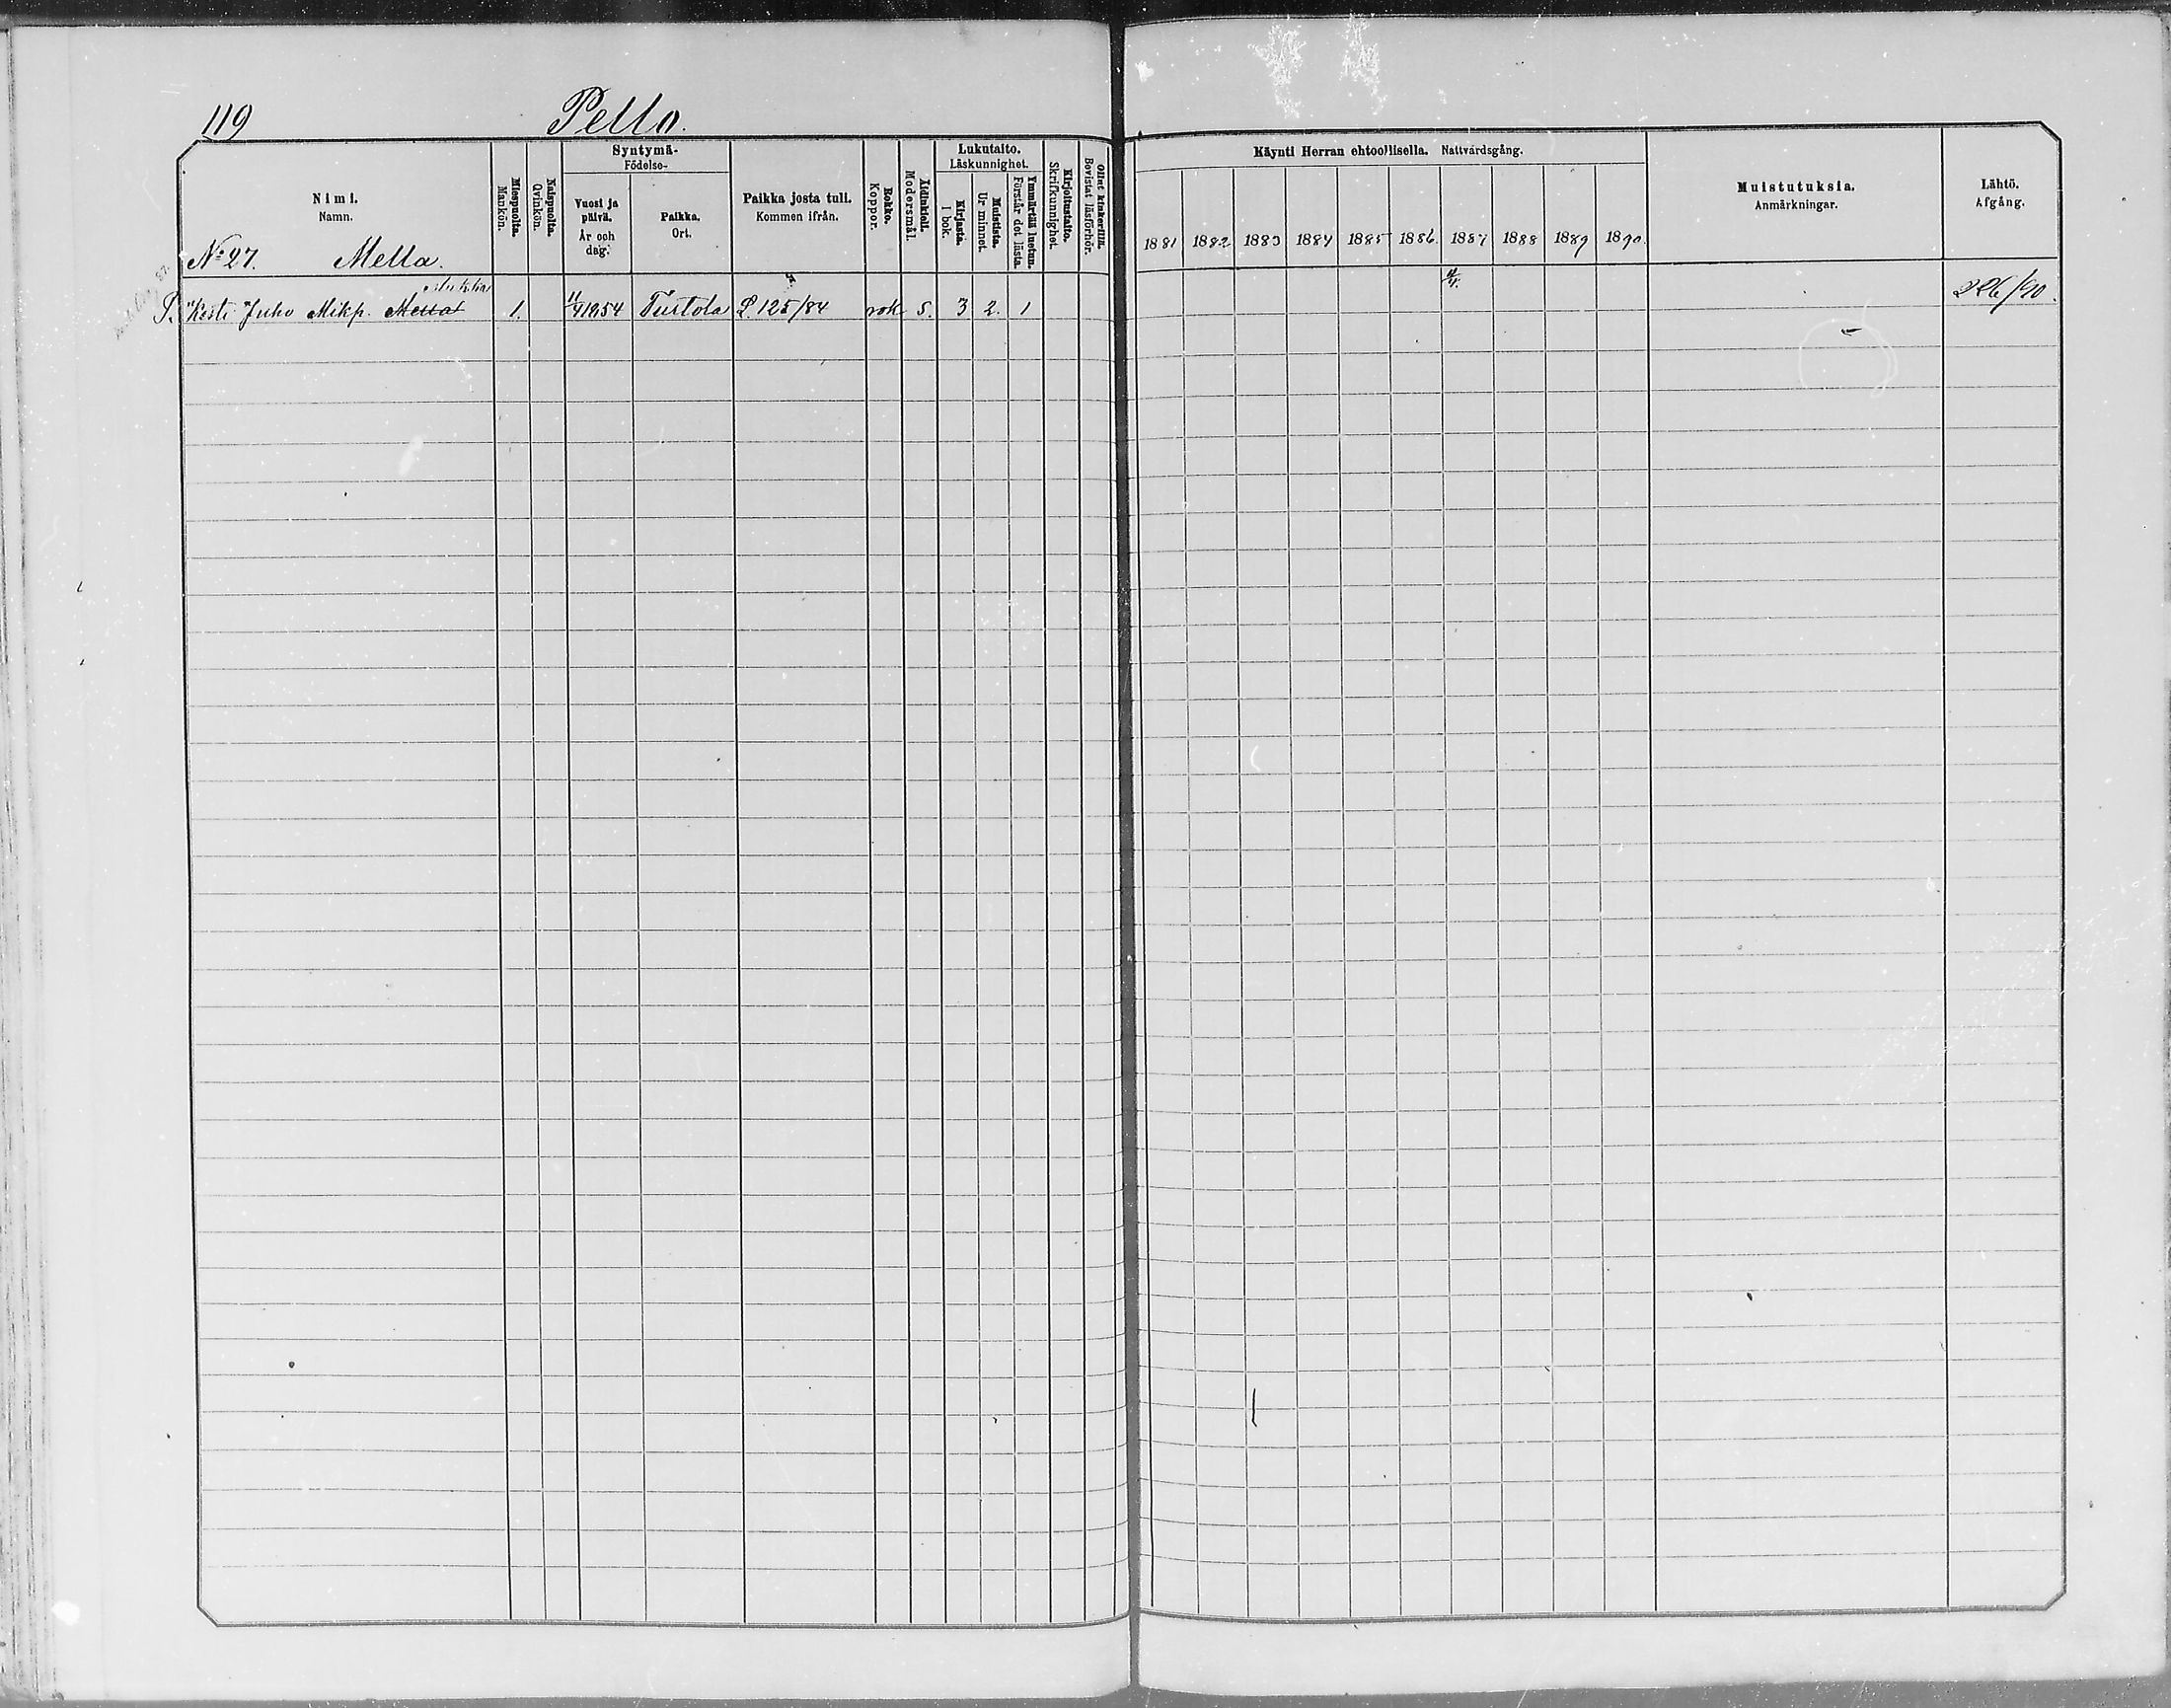 119 Pello.
Nimi. Namn.
Miespuolta. Mankön.
Naispuolta. Qvinkön.
Syntymä- Födelse-
Vuosi ja päivä. År och dag.
Paikka. Ort.
Paikka josta tuli. Kommen ifrån.
Rokko. Koppor.
Äidinkieli. Modersmål.
Lukutaito. Läskunnighet.
Kirjasta. I bok.
Muistista. Ur minnet.
Ymmärtää luetun. Förstår det lästa.
Kirjoitustaito. Skrifkunnighet.
Ollut kinkerillä. Bevistat läsförhör.
Käynti Herran ehtoollisella. Nattvardsgång.
1881 1882 1883 1884 1885 1886. 1887 1888 1889 1890.
Muistutuksia. Anmärkningar.
Lähtö. Afgång.
No 27. Mella.
Juho Mikp. Mella 1. 11/4 1854 Turtola P. 125/84 rok s. 3 2. 1 226/90.